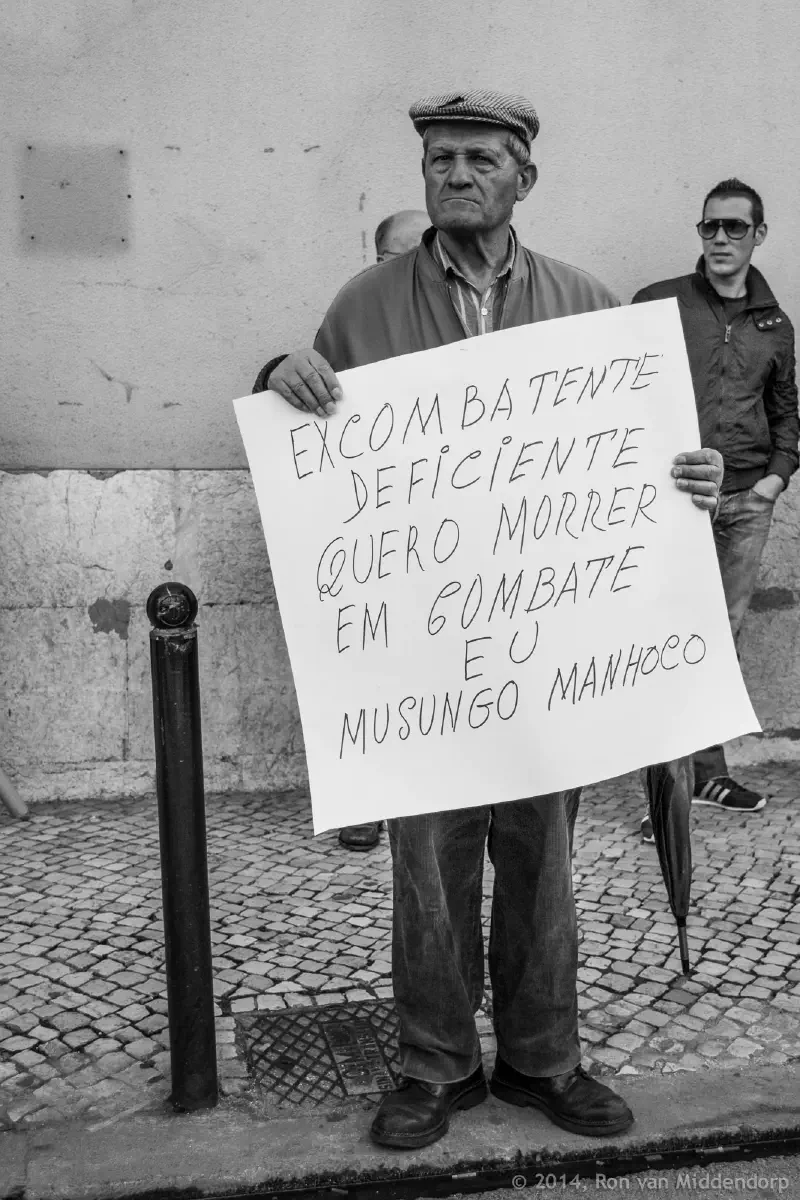 EXCOMBATENTE
DEFICIENTE
QUERO MORRER
EM COMBATE
EU
MUSUNGO MANHOCO
© 2014, Ron van Middendorp